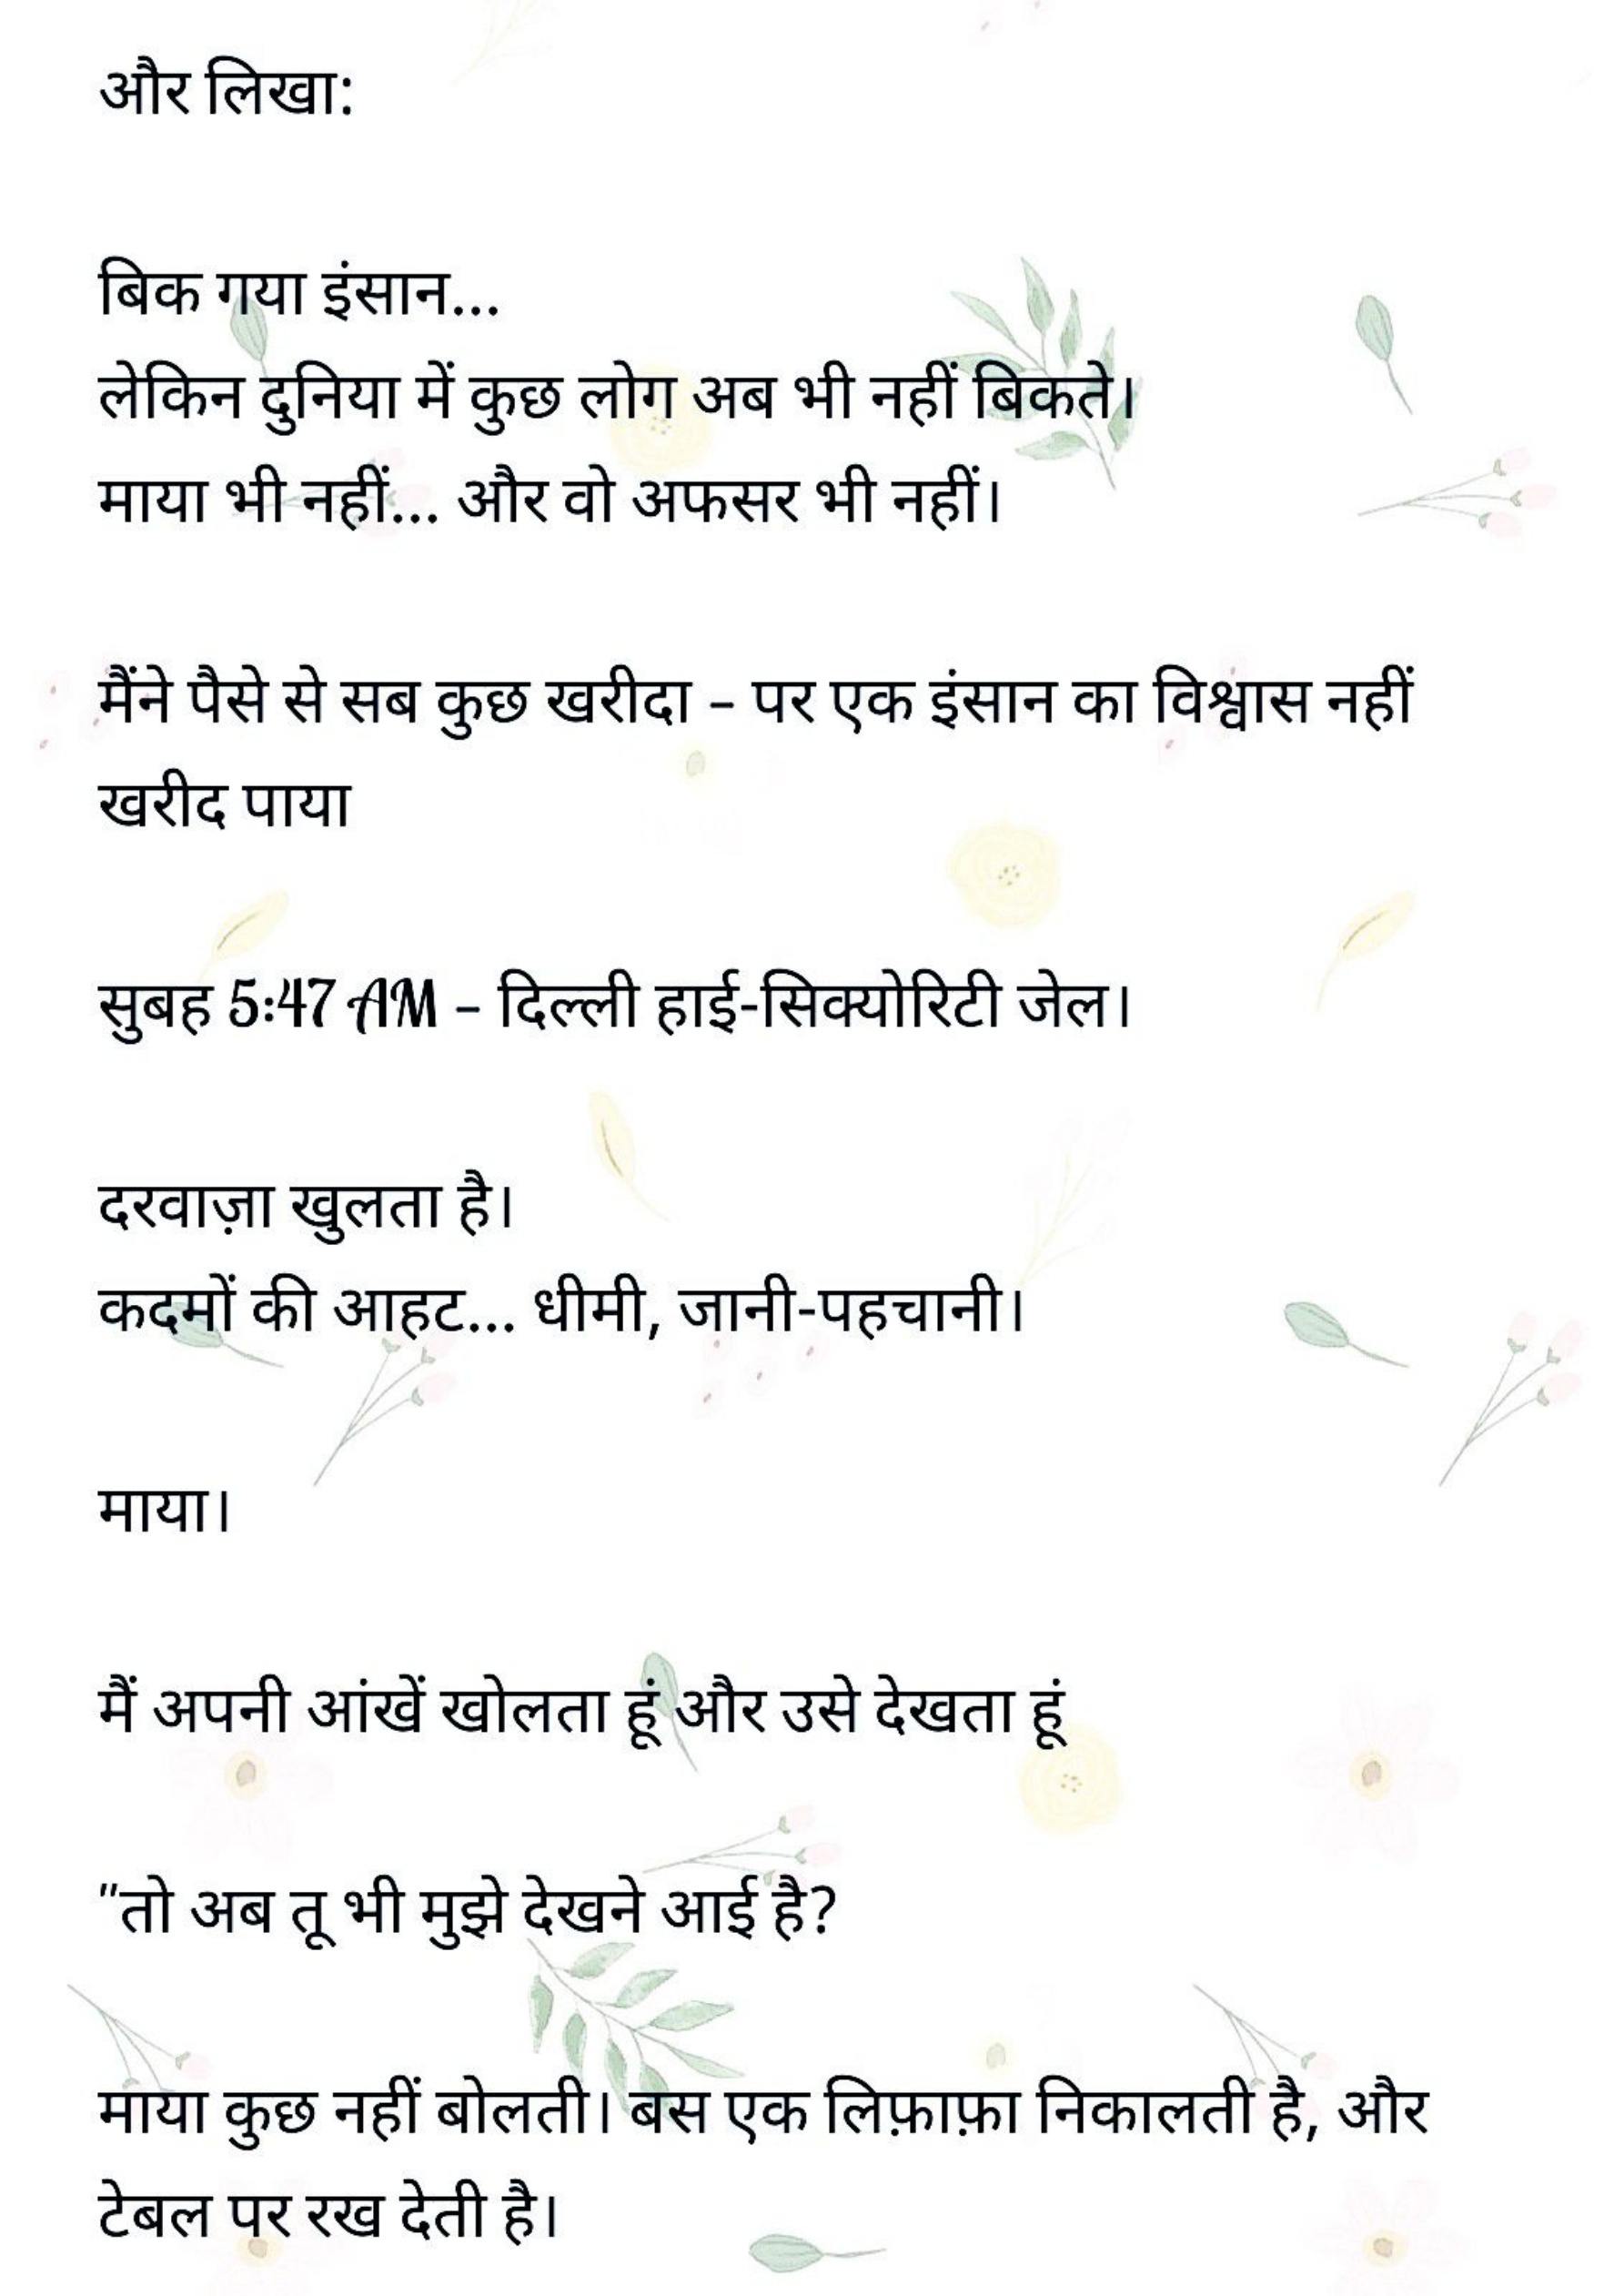 और लिखा:
बिक गया इंसान...
लेकिन दुनिया में कुछ लोग अब भी नहीं बिकते।
माया भी नहीं... और वो अफसर भी नहीं।
मैंने पैसे से सब कुछ खरीदा – पर एक इंसान का विश्वास नहीं
खरीद पाया
सुबह 5:47 AM – दिल्ली हाई-सिक्योरिटी जेल।
दरवाज़ा खुलता है।
कदमों की आहट... धीमी, जानी-पहचानी।
माया।
मैं अपनी आंखें खोलता हूं और उसे देखता हूं
"तो अब तू भी मुझे देखने आई है?
माया कुछ नहीं बोलती। बस एक लिफ़ाफ़ा निकालती है, और
टेबल पर रख देती है।